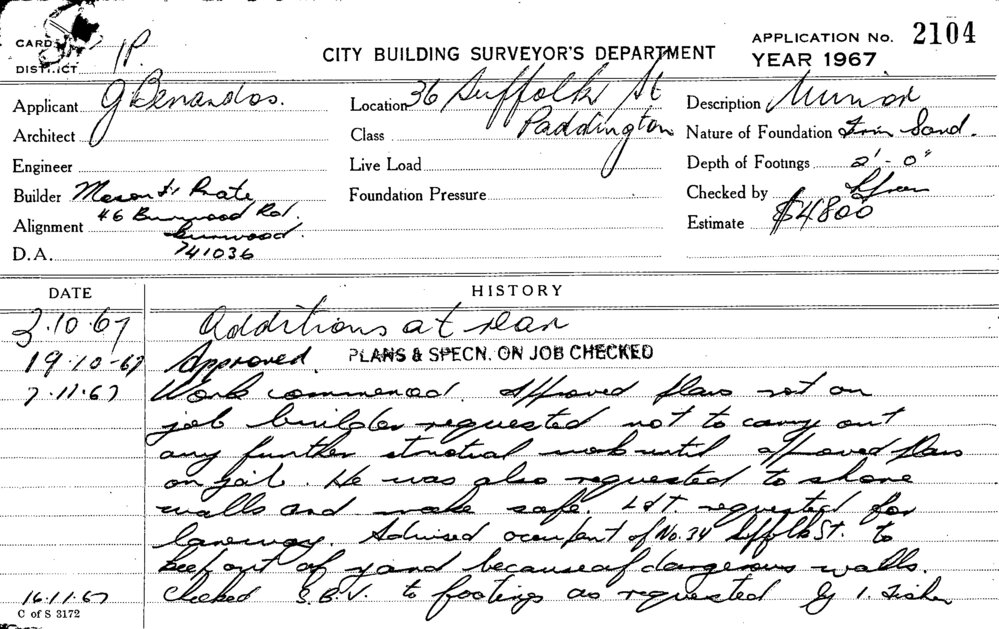 CARD
DISTRICT 1P.
CITY BUILDING SURVEYOR'S DEPARTMENT
APPLICATION No. 2104
YEAR 1967
Applicant G Benardos.
Architect
Engineer
Builder
46 Burwood Rd.
Alignment Burwood.
D.A. 741036
Location 36 Suffolk St
Paddington
Class
Live Load
Foundation Pressure
Description Minor
Nature of Foundation Firm Sand.
Depth of Footings 2'-0"
Checked by
Estimate $4800
DATE HISTORY
3.10.67 Additions at rear
19.10-67 Approved. PLANS & SPECN. ON JOB CHECKED
7.11.67 Work commenced. Approved plans not on
job builder requested not to carry out
any further structural work until approved plans
on job. He was also requested to shore
walls and make safe. L&T. requested for
laneway. Advised occupant of No. 34 Suffolk St. to
keep out of yard because of dangerous walls.
16.11.67 Checked S.B.V. to footings as requested by I. Fisher
C of S 3172